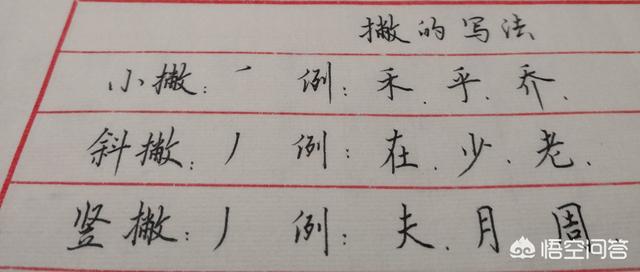 撇的写法
小撇：㇒ 例：禾、乎、乔、
斜撇：丿 例：在、少、老、
竖撇：丿 例：夫、月、周
悟空问答